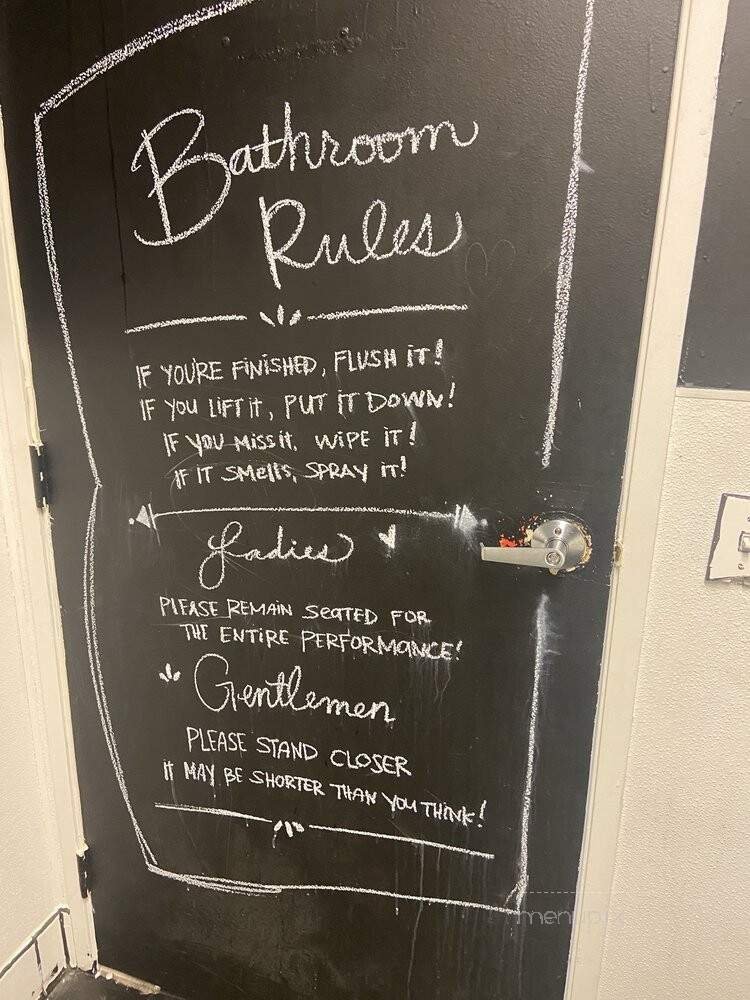 Bathroom
Rules
IF YOU'RE FINISHED, FLUSH IT!
IF YOU LIFT it, PUT IT DOWN!
IF YOU MISS it, WIPE IT!
IF IT SMElls, SPRAY it!
Ladies
PLEASE REMAIN SEATED FOR
THE ENTIRE PERFORMANCE!
Gentlemen
PLEASE STAND CLOSER
IT MAY BE SHORTER THAN YOU THINK!
menupix